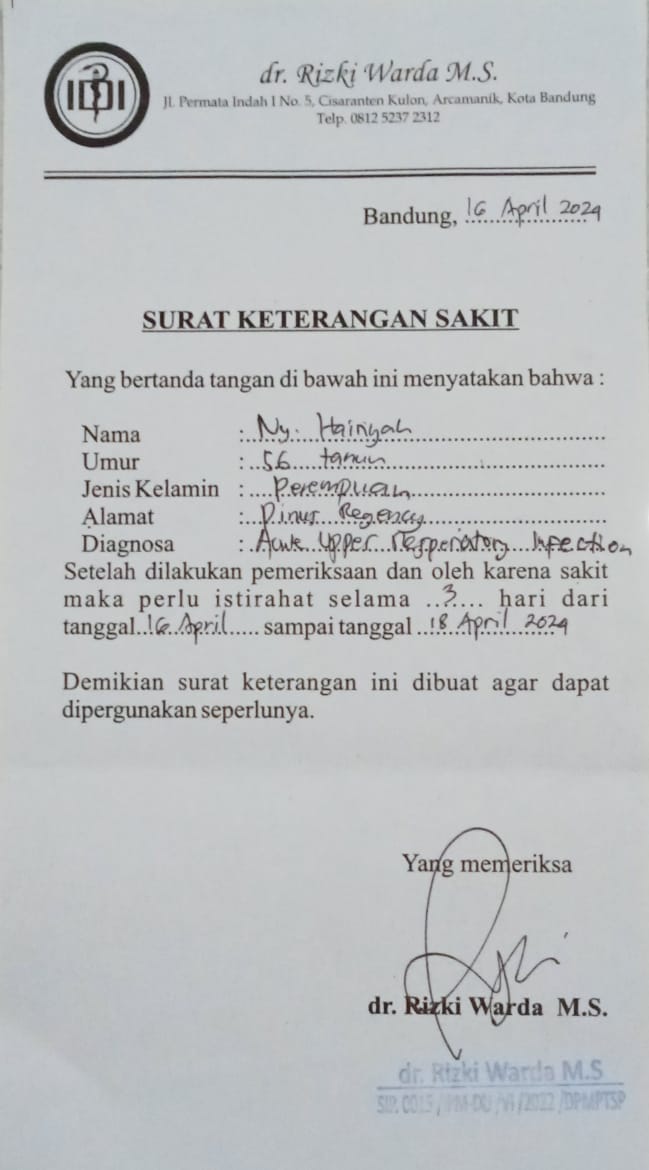 IDI
dr. Rizki Warda M.S.
Jl. Permata Indah I No. 5, Cisaranten Kulon, Arcamanik, Kota Bandung
Telp. 0812 5237 2312
Bandung, 16 April 2024
SURAT KETERANGAN SAKIT
Yang bertanda tangan di bawah ini menyatakan bahwa :
Nama : Ny. Hairiyah
Umur : 56 tahun
Jenis Kelamin : Perempuan
Alamat : Pinus Regency
Diagnosa : Acute Upper Resperiatory Infection
Setelah dilakukan pemeriksaan dan oleh karena sakit
maka perlu istirahat selama 3 hari dari
tanggal 16 April sampai tanggal 18 April 2024
Demikian surat keterangan ini dibuat agar dapat
dipergunakan seperlunya.
Yang memeriksa
dr. Rizki Warda M.S.
dr. Rizki Warda M.S
SIP. /2022 /DPMPTSP